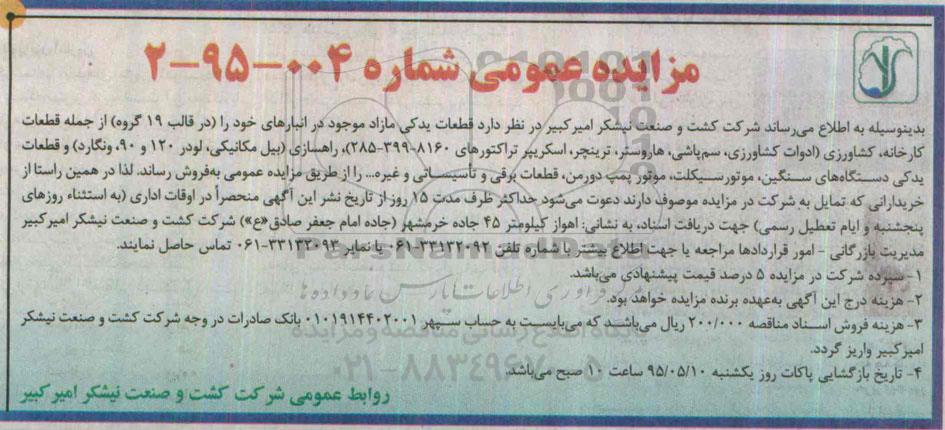 مزایده عمومی شماره ۰۰۴-۹۵-۲
بدینوسیله به اطلاع می‌رساند شرکت کشت و صنعت نیشکر امیرکبیر در نظر دارد قطعات یدکی مازاد موجود در انبارهای خود را (در قالب ۱۹ گروه) از جمله قطعات
کارخانه، کشاورزی (ادوات کشاورزی، سم‌پاشی، هاروستر، ترینچر، اسکریپر تراکتورهای ۸۱۶۰-۳۹۹-۲۸۵)، راهسازی (بیل مکانیکی، لودر ۱۲۰ و ۹۰، ونگارد) و قطعات
یدکی دستگاه‌های سنگین، موتورسیکلت، موتور پمپ دورمن، قطعات برقی و تأسیساتی و غیره... را از طریق مزایده عمومی به‌فروش رساند. لذا در همین راستا از
خریدارانی که تمایل به شرکت در مزایده موصوف دارند دعوت می‌شود حداکثر ظرف مدت ۱۵ روز از تاریخ نشر این آگهی منحصراً در اوقات اداری (به استثناء روزهای
پنجشنبه و ایام تعطیل رسمی) جهت دریافت اسناد، به نشانی: اهواز کیلومتر ۴۵ جاده خرمشهر (جاده امام جعفر صادق «ع») شرکت کشت و صنعت نیشکر امیرکبیر
مدیریت بازرگانی - امور قراردادها مراجعه یا جهت اطلاع بیشتر با شماره تلفن ۳۳۱۳۲۰۹۲-۰۶۱ یا نمابر ۳۳۱۳۲۰۹۳-۰۶۱ تماس حاصل نمایند.
۱- سپرده شرکت در مزایده ۵ درصد قیمت پیشنهادی می‌باشد.
۲- هزینه درج این آگهی به‌عهده برنده مزایده خواهد بود.
۳- هزینه فروش اسناد مناقصه ۲۰۰/۰۰۰ ریال می‌باشد که می‌بایست به حساب سپهر ۰۱۰۱۹۱۴۴۰۲۰۰۱ بانک صادرات در وجه شرکت کشت و صنعت نیشکر
امیرکبیر واریز گردد.
۴- تاریخ بازگشایی پاکات روز یکشنبه ۹۵/۰۵/۱۰ ساعت ۱۰ صبح می‌باشد.
روابط عمومی شرکت کشت و صنعت نیشکر امیرکبیر
ParsNamadData
پایگاه اطلاع رسانی مناقصه و مزایده
۰۲۱-۸۸۳۴۹۶۷۰-۵